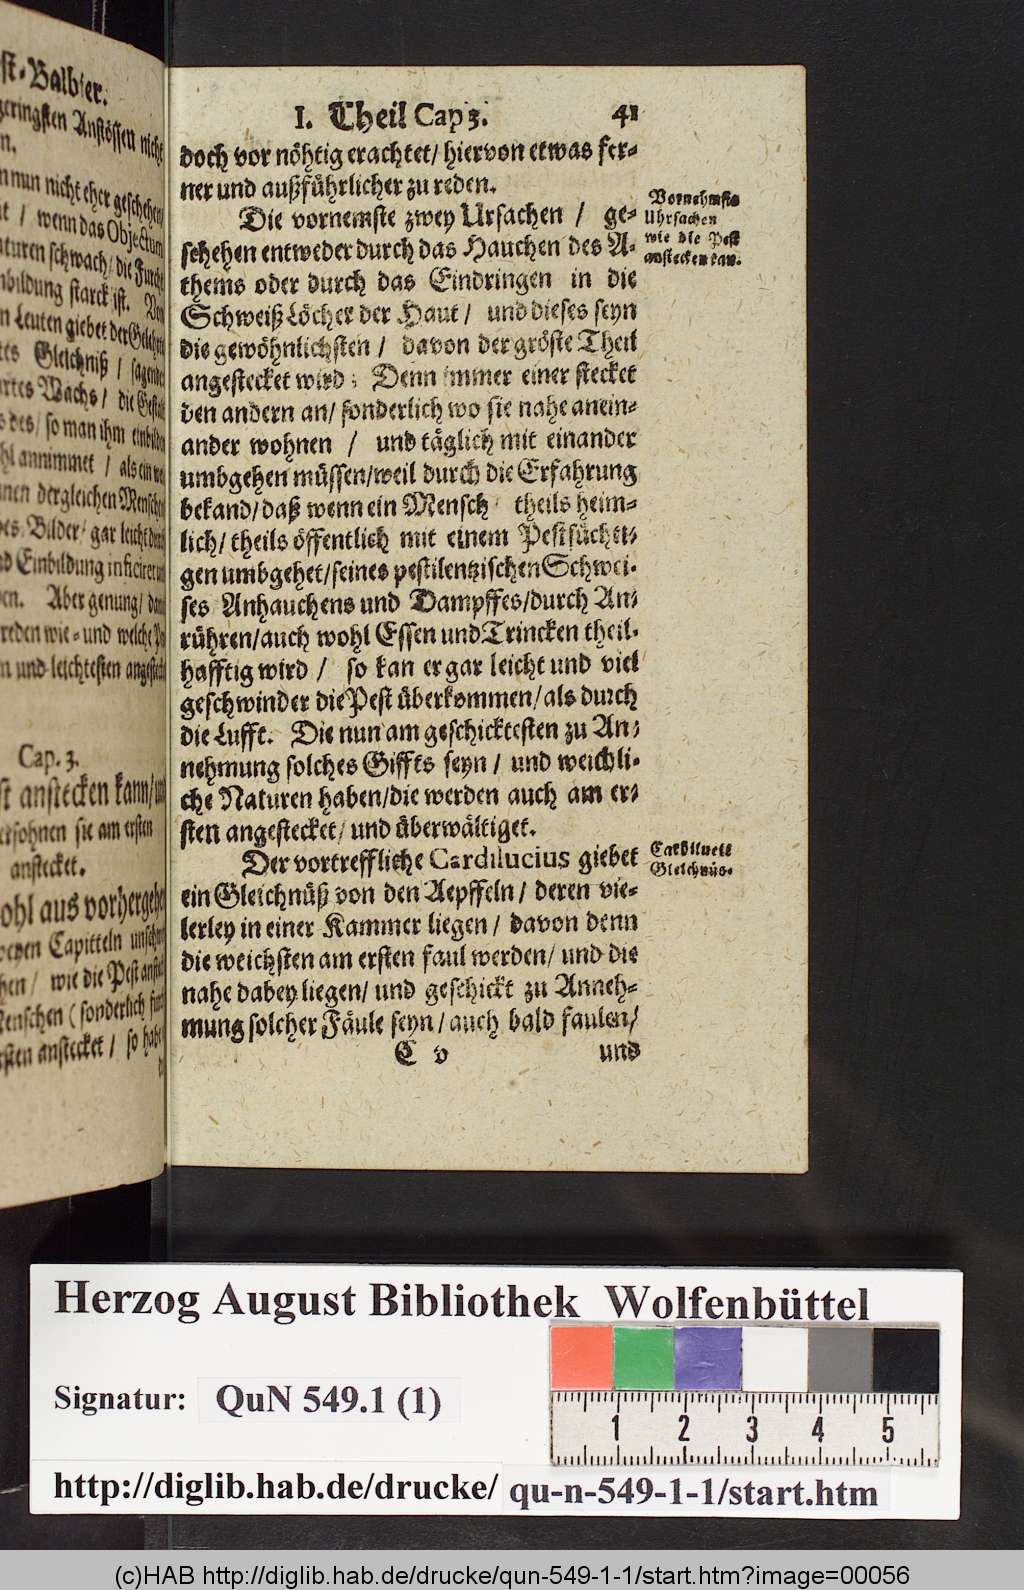 st-Balbier.
geringsten Anstössen nicht
en.
nun nicht eher geschehen/
/ wenn das Objectum
naturen schwach/ die Furcht
bildung starck ist. Von
n Leuten giebet der Gelehrte
Gleichniß / sagende
Wachs / die Gestalt
des / so man ihm einbilden
annimmet / als ein
dergleichen Menschen
Bilder/ gar leicht durch
Einbildung inficiret
Aber genung/ denn
reden wie- und welche
und leichtesten angesteckt
Cap. 3.
st anstecken kann/ und
ersohnen sie am ersten
anstecket.
ohl aus vorhergehe
Capitteln
/ wie die Pest anste
Menschen ( sonderlich
ersten anstecket / so habe
I. Theil Cap 3. 41
doch vor nöhtig erachtet/ hiervon etwas fer-
ner und außführlicher zu reden.
Die vornemste zwey Ursachen / ge-
schehen entweder durch das Hauchen des A-
thems oder durch das Eindringen in die
Schweiß Löcher der Haut / und dieses seyn
die gewöhnlichsten / davon der gröste Theil
angestecket wird; Denn immer einer stecket
den andern an/ sonderlich wo sie nahe anein-
ander wohnen / und täglich mit einander
umbgehen müssen/weil durch die Erfahrung
bekand/ daß wenn ein Mensch theils heim-
lich/ theils öffentlich mit einem Pestsüchti-
gen umbgehet/ seines pestilentzischen Schwei-
ses Anhauchens und Dampffes/durch An-
rühren/auch wohl Essen und Trincken theil-
hafftig wird / so kan er gar leicht und viel
geschwinder die Pest überkommen/ als durch
die Lufft. Die nun am geschicktesten zu An-
nehmung solches Giffts seyn / und weichli-
che Naturen haben/die werden auch am er-
sten angestecket/ und überwältiget.
Der vortreffliche Cardilucius giebet
ein Gleichnüß von den Aepffeln / deren vie-
lerley in einer Kammer liegen / davon denn
die weichsten am ersten faul werden/ und die
nahe dabey liegen/ und geschickt zu Anneh-
mung solcher Fäule seyn / auch bald faulen/
C v und
Vornehmste
Uhrsachen
wie die Pest
anstecken kan.
Cardilucii
Gleichnüs.
Herzog August Bibliothek Wolfenbüttel
Signatur: QuN 549.1 (1)
1 2 3 4 5
http://diglib.hab.de/drucke/ qu-n-549-1-1/start.htm
(c)HAB http://diglib.hab.de/drucke/qun-549-1-1/start.htm?image=00056